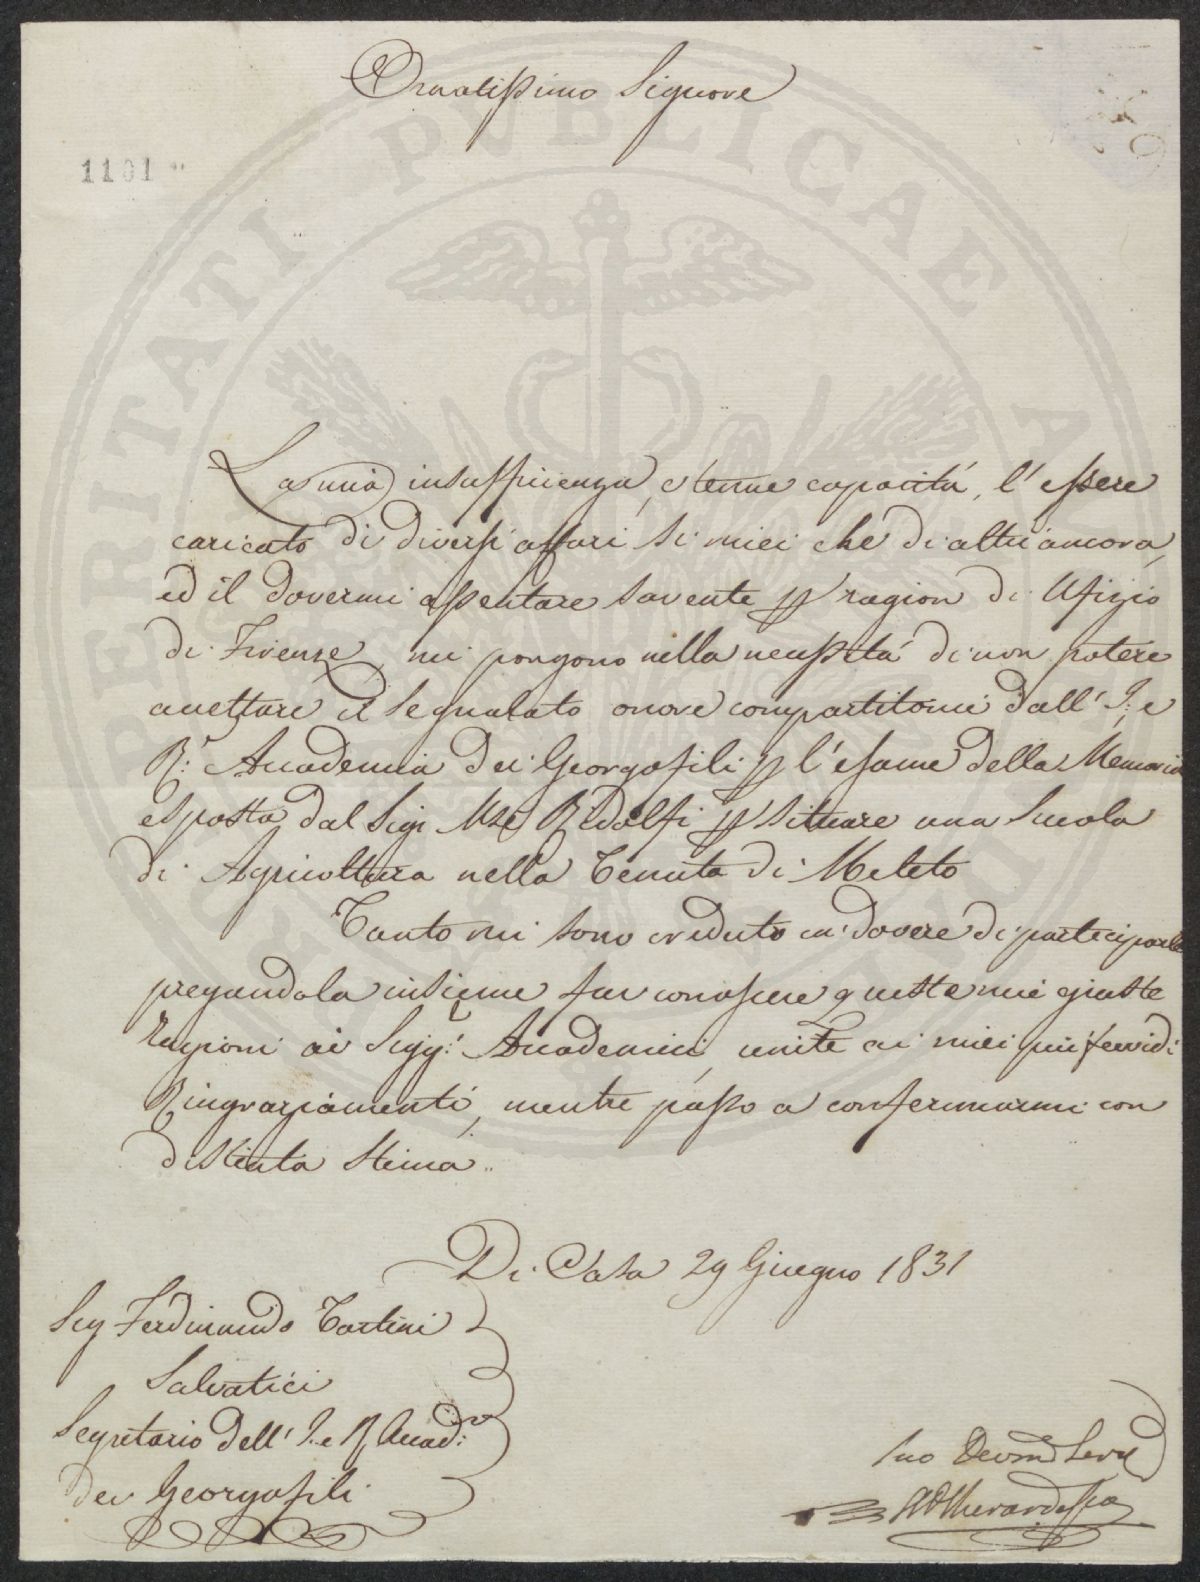 Ornatissimo Signore
1101
La mia insufficienza, e tenue capacitá, l'essere
caricato di diversi affari si miei che di altri ancora,
ed il dovermi assentare sovente p ragion di Ufizio
di Firenze, mi pongono nella necessitá di non potere
accettare il segnalato onore compartitomi dall' I: e
R: Accademia dei Georgofili p l'esame della Memoria
esposta dal Sigr Mse Ridolfi p situare una Scuola
di Agricoltura nella Tenuta di Meleto
Tanto mi sono creduto in dovere di parteciparle
pregandola insieme far conoscere queste mie giuste
ragioni ai Sigg:i Accademici, unite ai miei piú fervidi
Ringraziamenti, mentre passo a confermarmi con
distinta stima..
Di Casa 29 Giugno 1831
Sig Ferdinando Tartini
Salvatici
Segretario dell' I. e R Accad:
dei Georgofili
Suo Devmo Serve
Gherardesca
PROSPERITATI PVBLICAE AVGENDAE